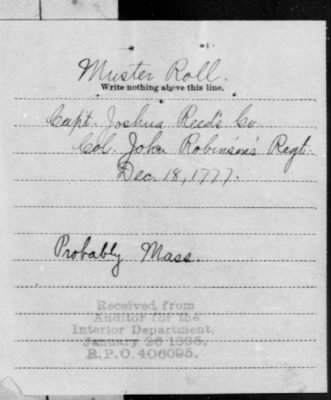 Muster Roll.
Write nothing above this line.
Capt. Joshua Reed's Co.
Col. John Robinson's Regt.
Dec. 18, 1777.
Probably Mass.
Received from
Auditor for the
Interior Department,
January 26 1895.
R.P.O. 406095.